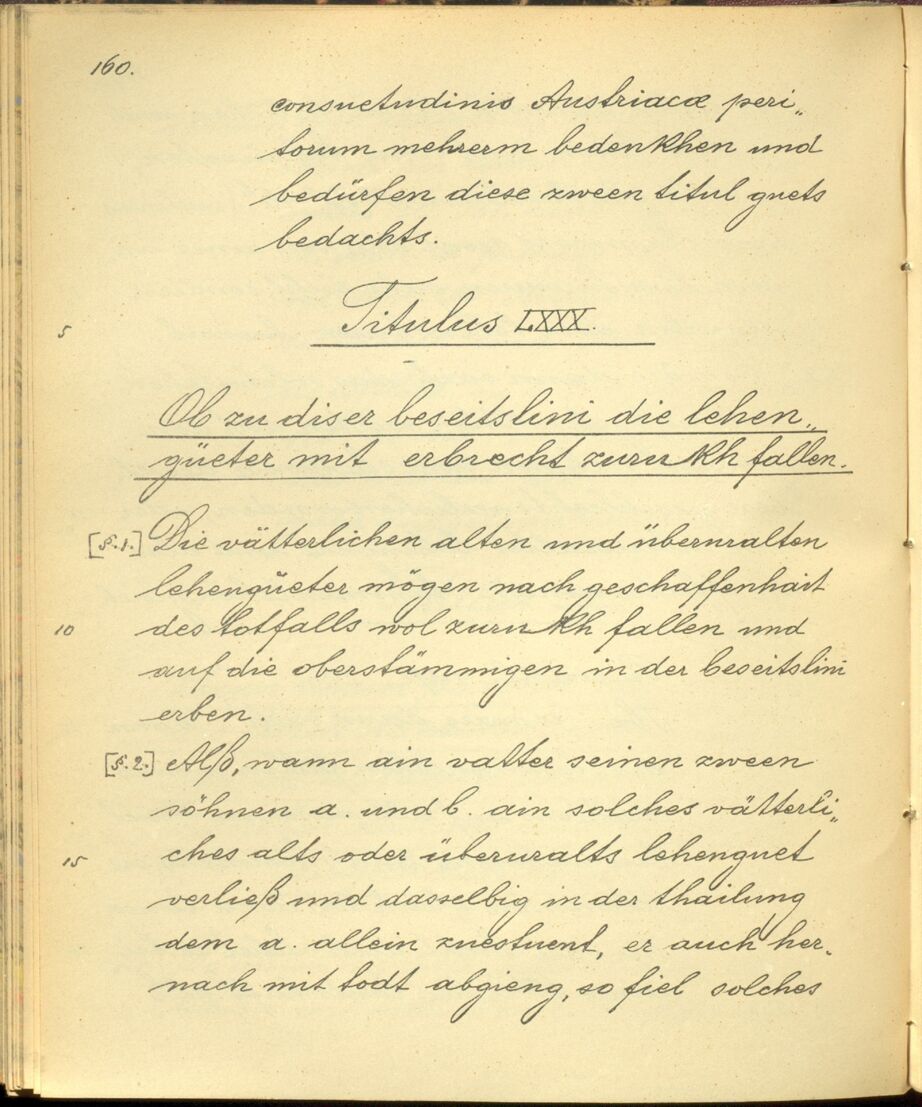 160.
consuetudinis Austriacæ peri„
torum mehrerm bedenkhen und
bedürfen diese zween titul guets
bedachts.
5
Titulus LXXX.
Ob zu diser beseitslini die lehen„
güeter mit erbrecht zurukh fallen.
[§.1.] Die vätterlichen alten und überuralten
lehengüeter mögen nach geschaffenhait
10 des totfalls wol zurukh fallen und
auf die oberstämmigen in der beseitslini
erben.
[§.2.] Alß, wann ain vatter seinen zween
söhnen a. und b. ain solches vätterli„
15 ches alts oder überuralts lehenguet
verließ und dasselbig in der thailung
dem a. allein zuestuent, er auch her„
nach mit todt abgieng, so fiel solches